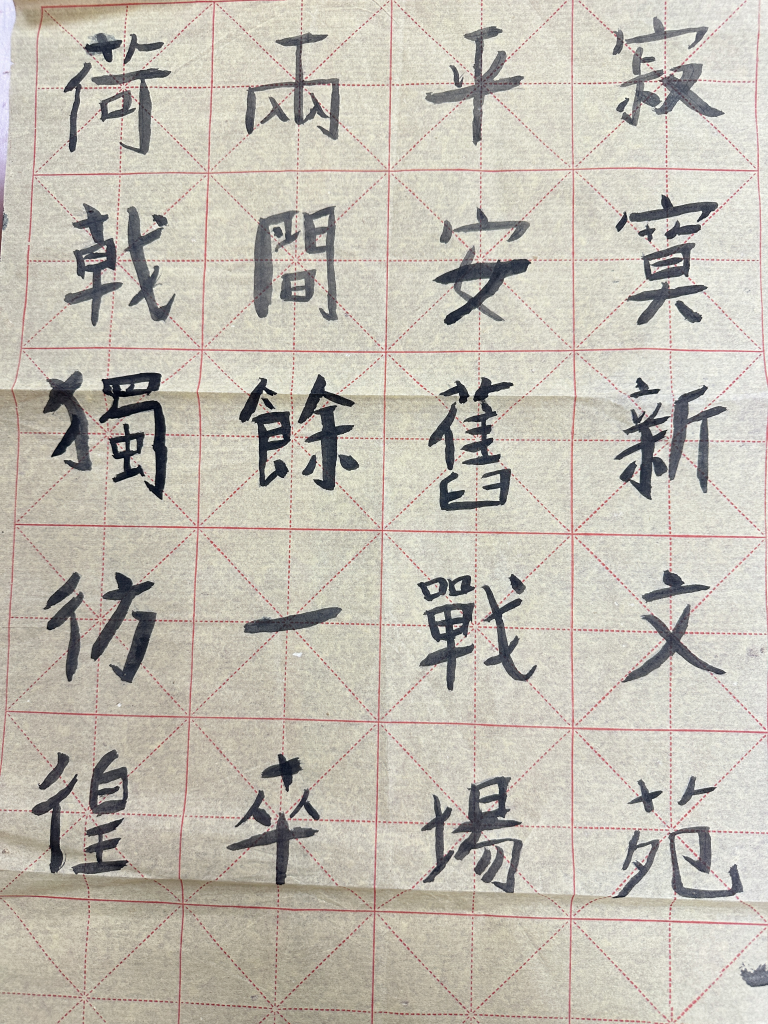 寂寞新文苑
平安舊戰場
兩間餘一卒
荷戟獨彷徨